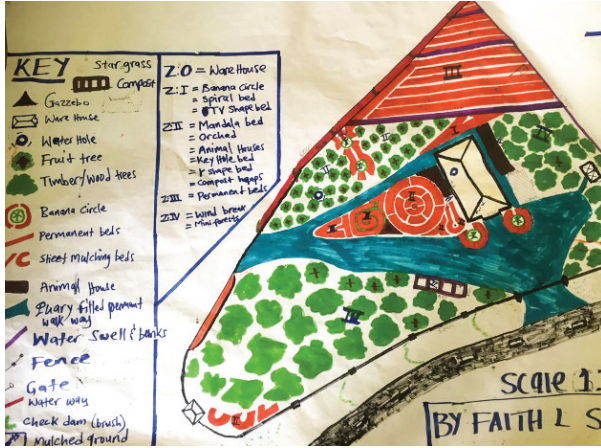 KEY
Star grass
Compost
Gazzebo
Ware House
Water Hole
Fruit tree
Timber/Wood trees
Banana Circle
Permanent beds
Sheet Mulching beds
Animal House
Quary filled permant
walk way
Water Swells & banks
Fence
Gate
Water way
Check dam (brush)
Mulched ground
Z:O = Ware House
Z:I = Banana Circle
= Spiral bed
= TV Shape bed
Z:II = Mandala bed
= Orchad
= Animal Houses
= Key Hole bed
= Y shape bed
= Compost heaps
Z:III = Permanent beds
Z:IV = Wind break
= Mini forests
III
I
II
IV
Scale 1:
BY FAITH L S